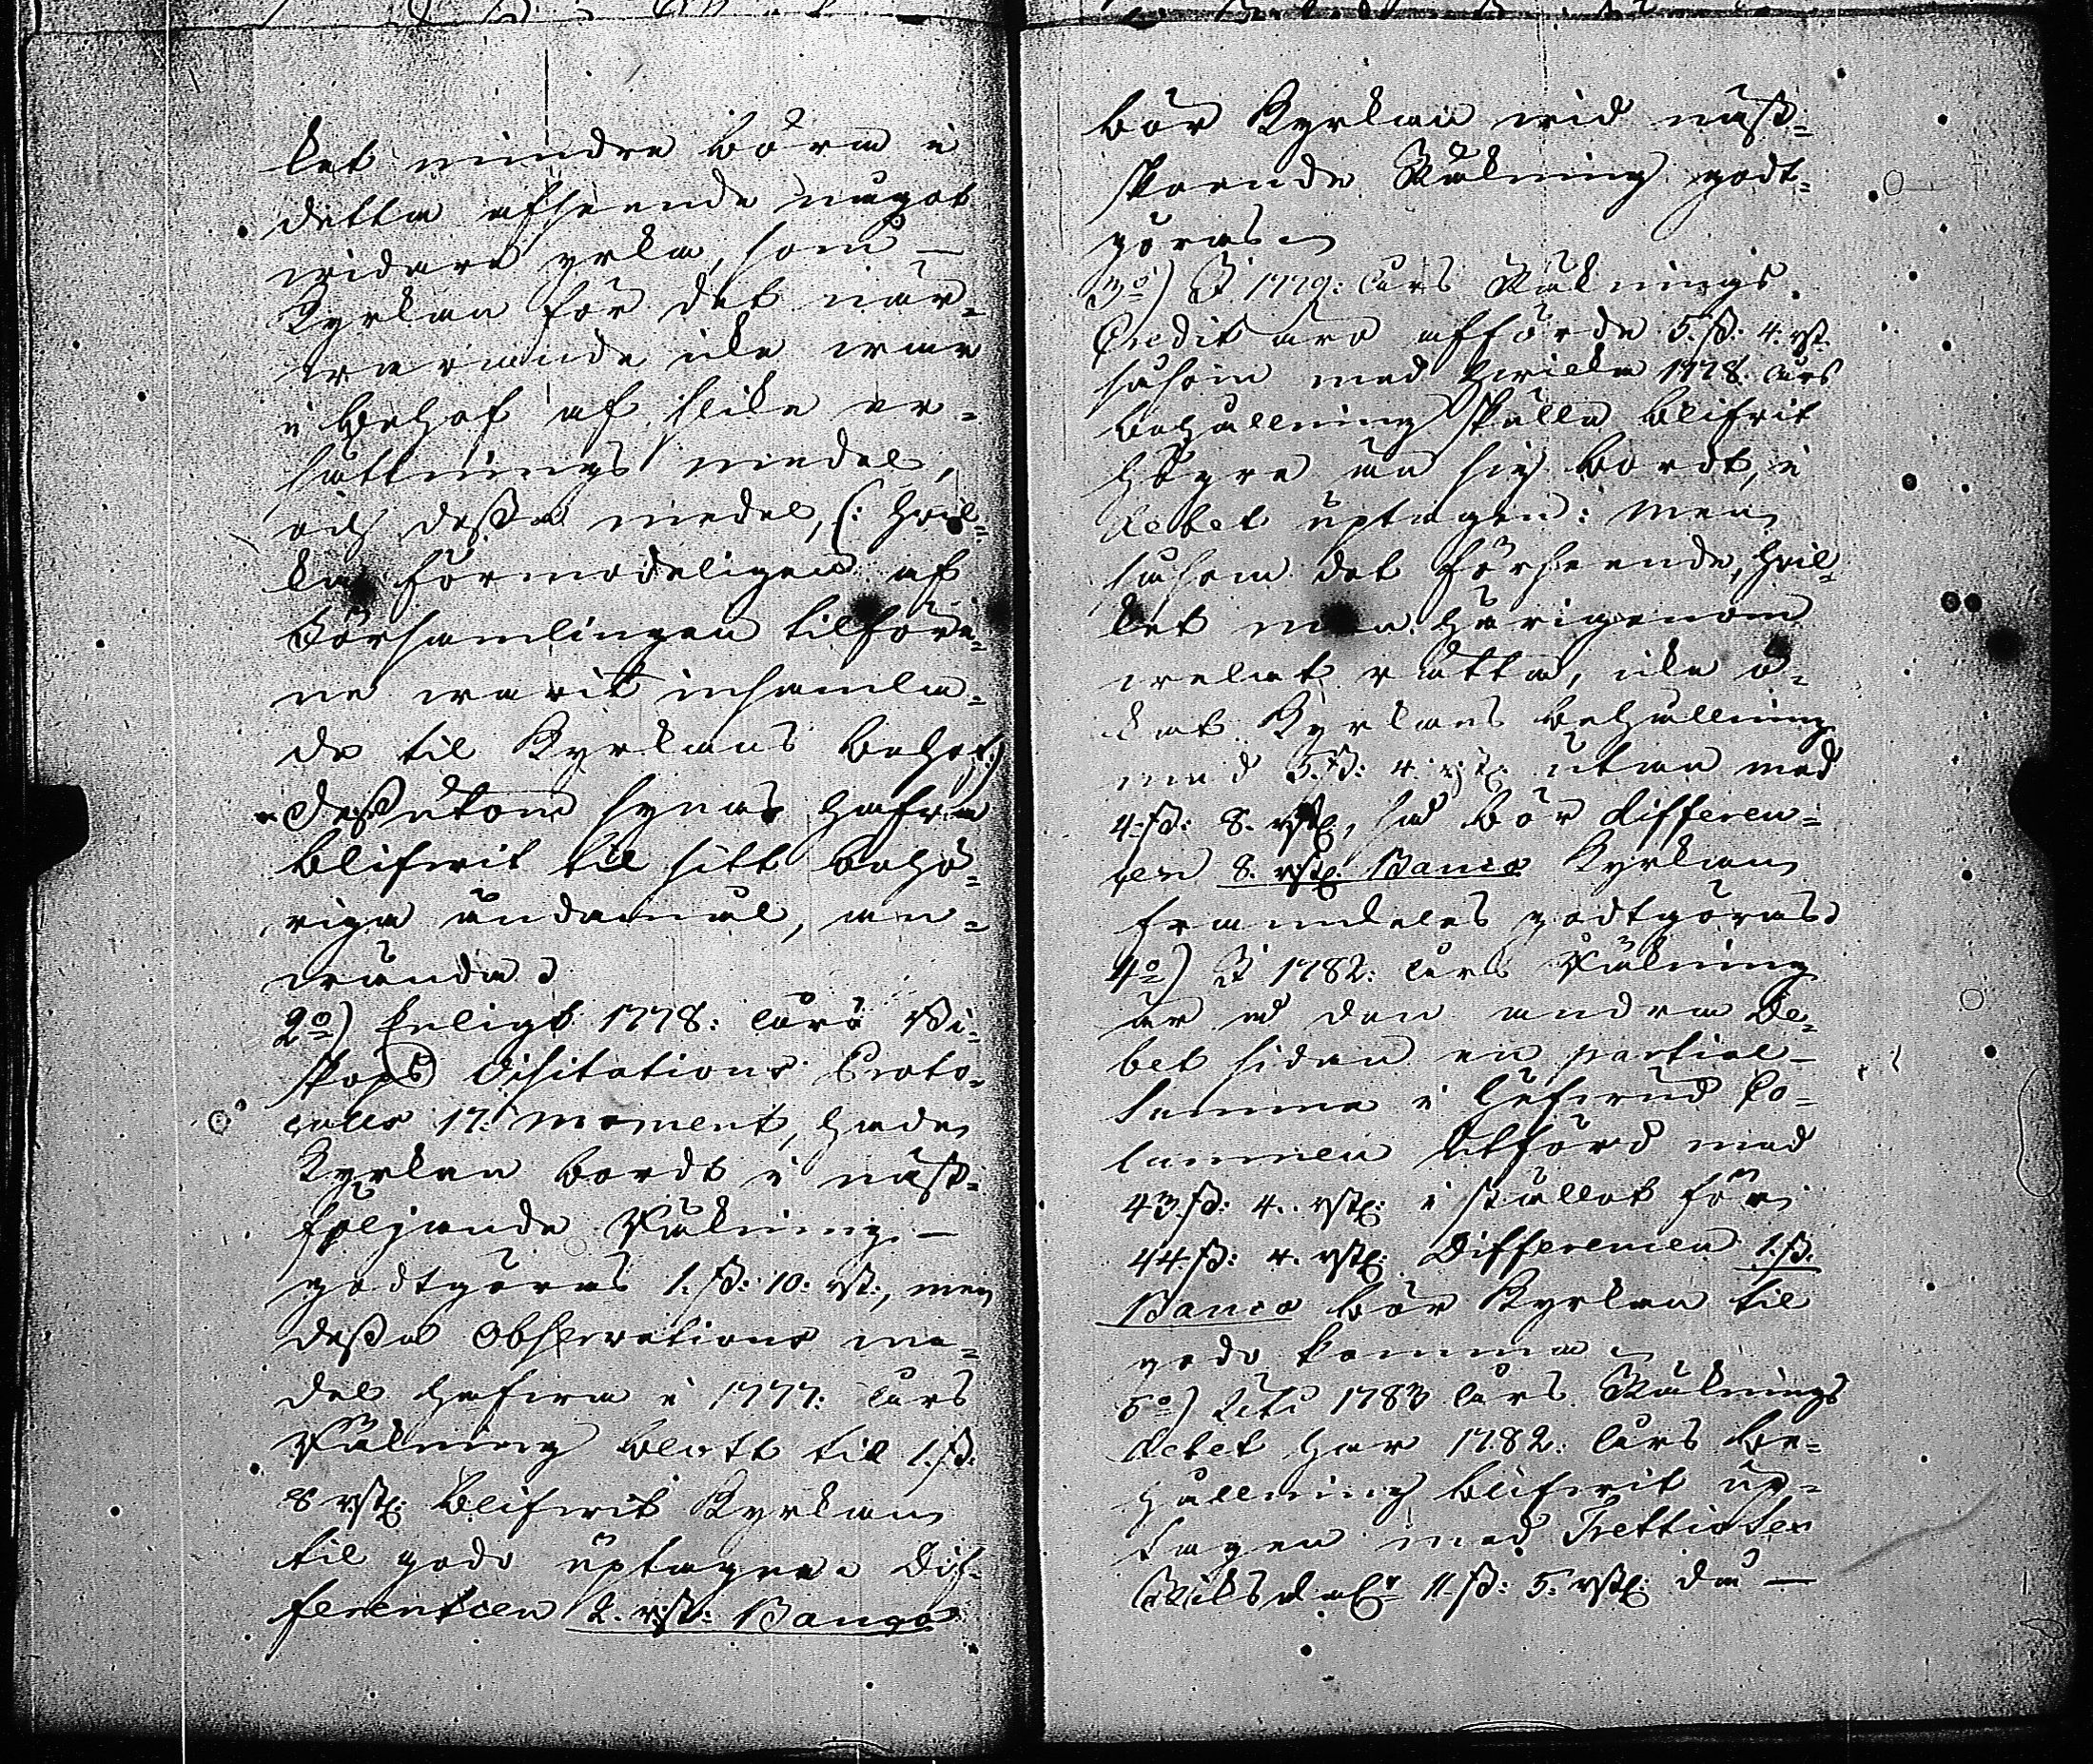 ket mindre böra i
detta afseende något
vidare yrka, som —
Kyrkan för det när-
warande icke war
i behof af slike er-
sättnings medel,
och dessa medel, (: hvil-
ka förmodeligen af
Församlingen tilföre-
ne warit insamla-
de til Kyrkans behof:)
dessutom synas hafva
blifwit til sitt behö-
riga ändamål, an-
wända.
2:o) Enligt 1778: års Bi-
skops Visitations Proto-
colls 17: moment, hade
Kyrkan bordt i näst-
följande Räkning. —
godtgöras 1. ß: 10: rst:, men
dessa Observations me-
del hafwa i 1777: års
Räkning blott til 1. ß:
8 rst: blifwit Kyrkan
til godo uptagne. Dif-
ferentien 2. rst: Banco
bör Kyrkan wid näst-
skeende Räkning godt-
göras.
3:o) I 1779: års Räknings
Credit äro afförde 5. ß: 4. rst.
såsom med hvilka 1778. års
behållning skulle blifvit
högre än sig bordt, i
debet uptagen: men
såsom det förseende, hvil-
ket man härigenom
welat rätta, icke ö-
kat Kyrkans behållning
med 5. ß: 4. rst: utan med
4. ß: 8. rst:, så bör differen-
cen 8. rst: Banco Kyrkan
framdeles godtgöras.
4:o) I 1782: års Räkning
är på den andra De-
bet sidan en partial-
Summa i hufwud Co-
lumnen utförd med
43. ß: 4. rst: i stället för
44 ß: 4. rst: Differencen 1. ß.
Banco bör Kyrkan til
godo komma.
5:o) Uti 1783 års Räknings
debet har 1782. års be-
hållning blifwit up-
tagen med Trettio Sex
Riksdal:r 11. ß: 5. rst: då —